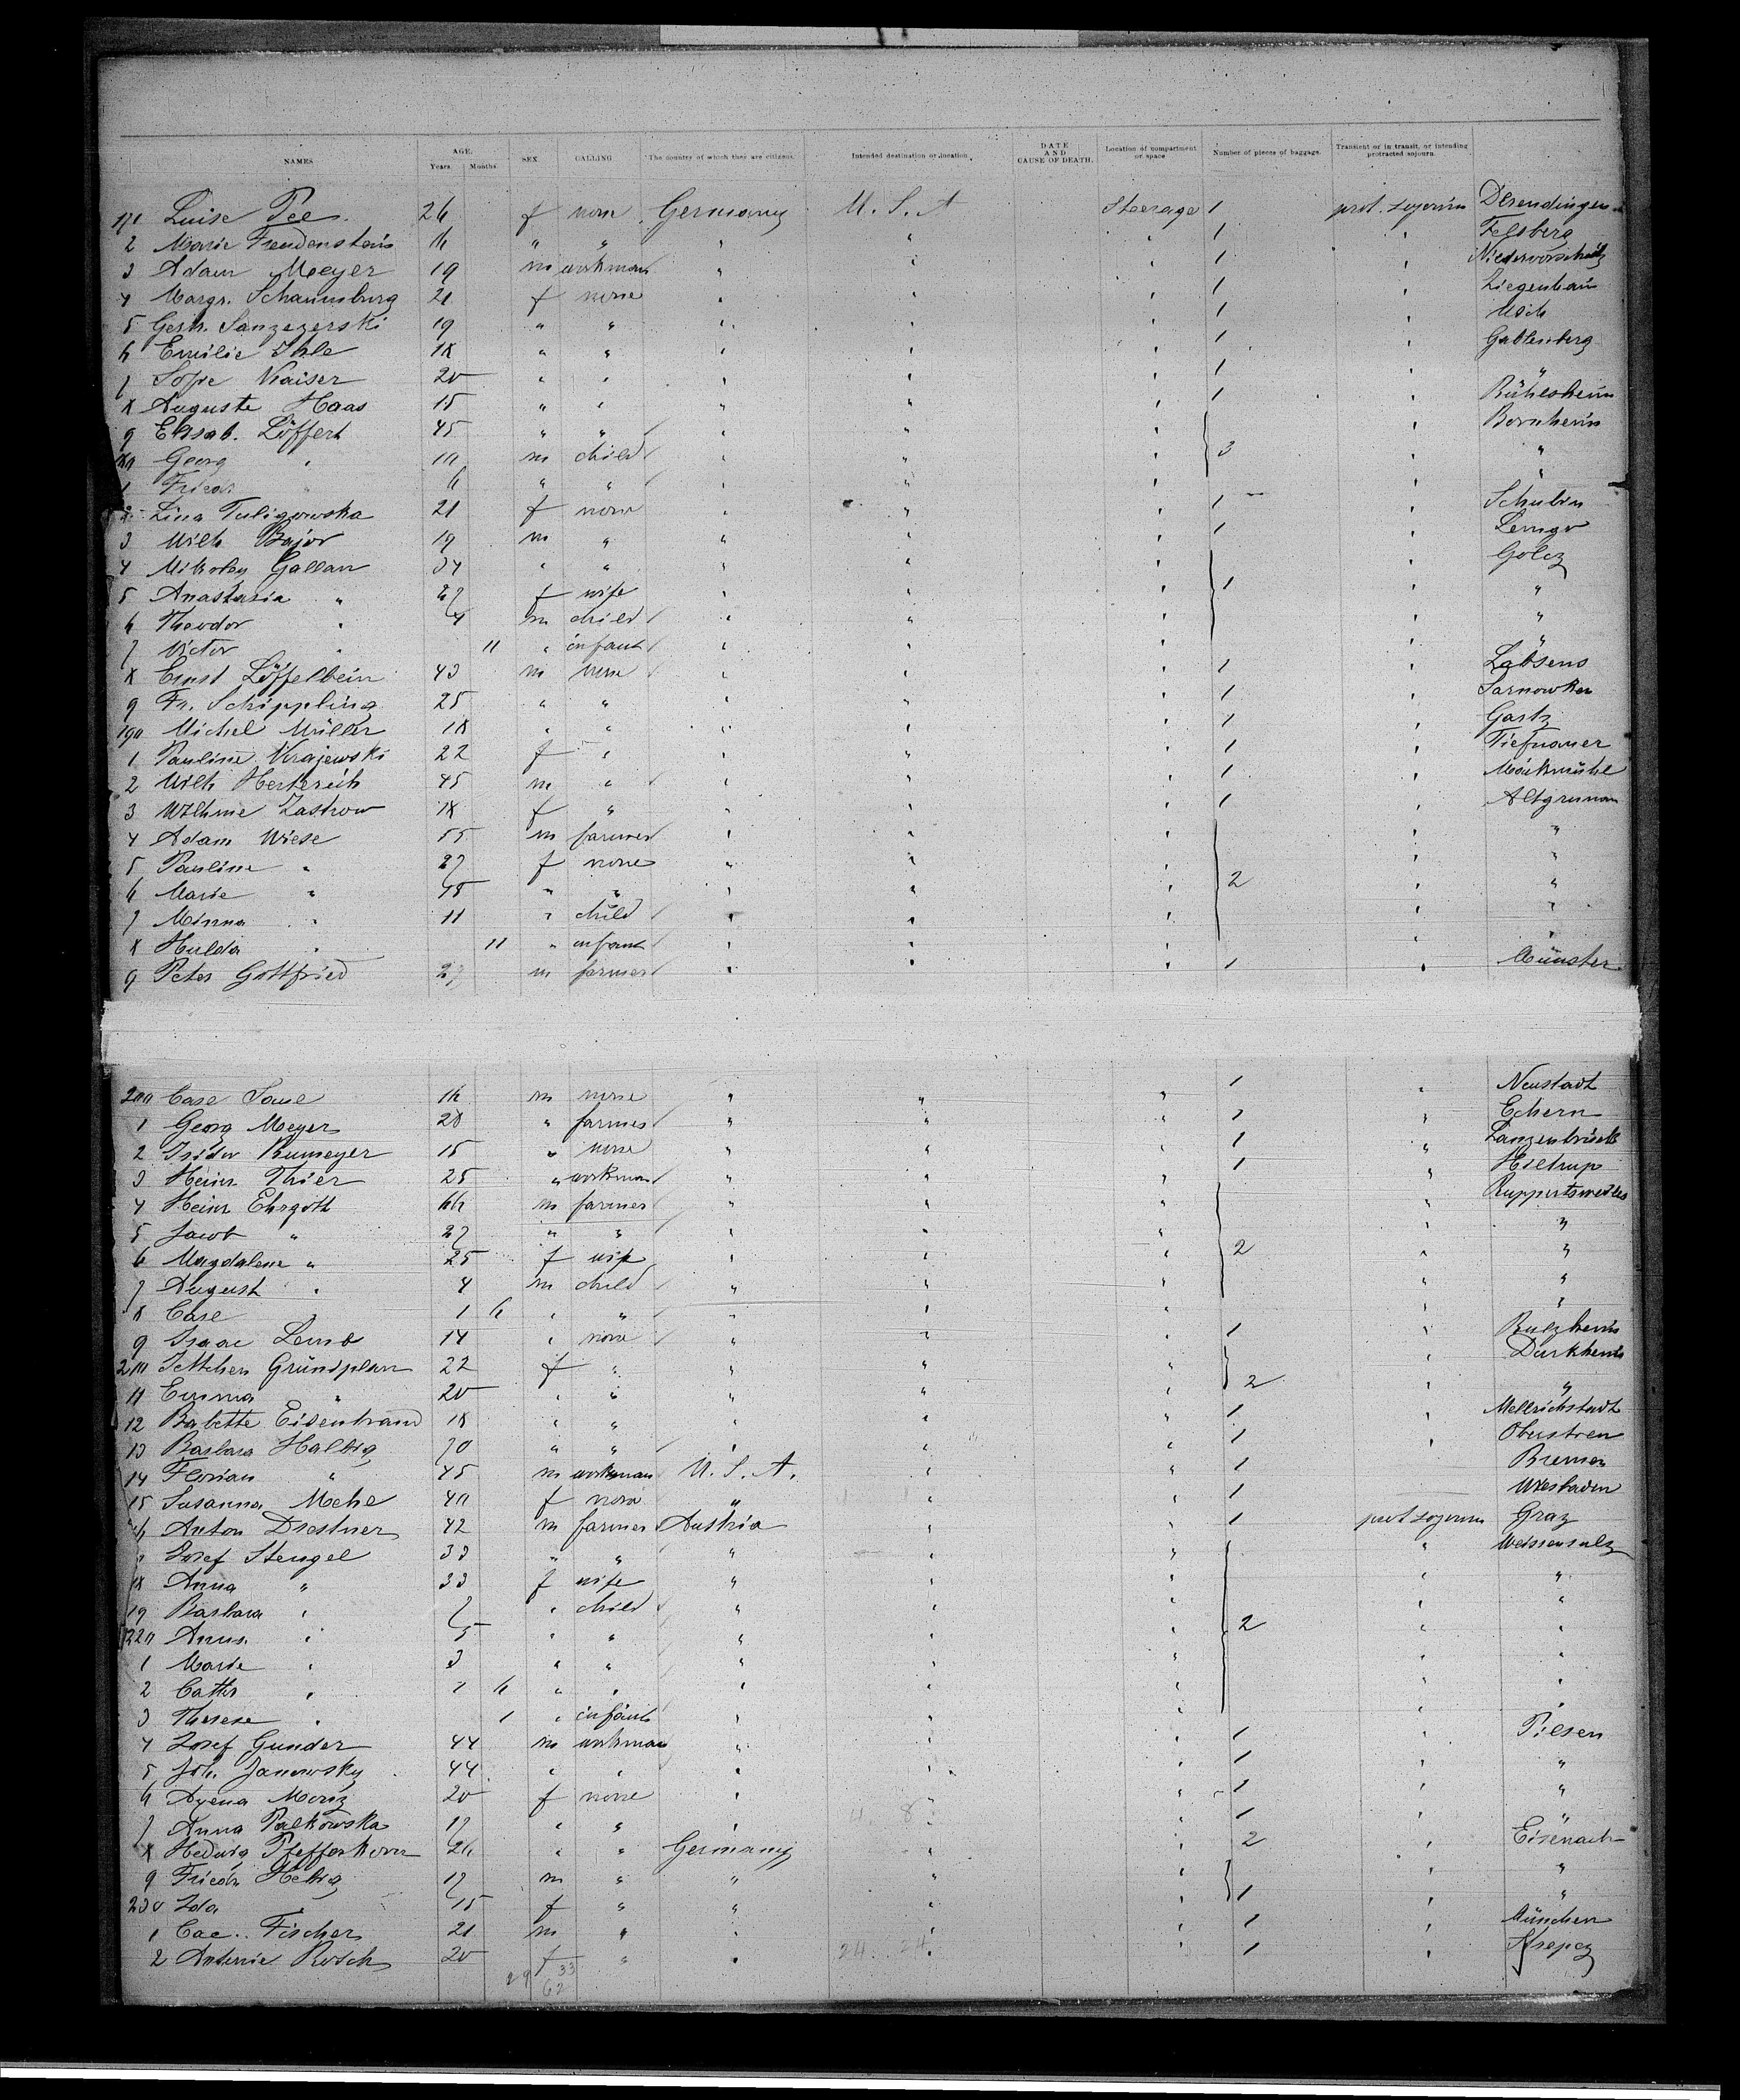 NAMES AGE. Years. Months. SEX. CALLING The country of which they are citizens. Intended destination or location. DATE AND CAUSE OF DEATH. Location of compartment or space Number of pieces of baggage. Transient or in transit, or intending protracted sojourn.
171 Luise Pee 26 f none Germany U.S.A Steerage 1 prot. sojourn Derendingen
2 Marie Freudenstein 16 " " " " " 1 " Felsberg
3 Adam Meyer 19 m workman " " " 1 "
4 Margr. Schaumburg 21 f none " " " 1 " Ziegenhain
5 19 " " " " " 1 " Usch
6 Emilie Ihle 18 " " " " " 1 " Gablenberg
7 Sofie Kaiser 20 " " " " " 1 " "
8 Auguste Haas 15 " " " " " 1 "
9 Elisab. Löffert 45 " " " " " 3 " Bornheim
180 Georg " 10 m child " " " " "
1 Friedr. " 6 " " " " " " "
2 Lina Tuligowska 21 f none " " " 1 " Schubin
3 Wilh Bajor 19 m " " " " 1 " Lemgo
4 Gallan 34 " " " " " 1 " Golcz
5 Anastasia " 27 f wife " " " " "
6 Theodor " 4 m child " " " " "
7 Victor " 11 " infant " " " " "
8 Ernst Löffelbein 43 m none " " " 1 " Lobsens
9 Fr. Schippling 25 " " " " " 1 " Sarnowken
190 Michel Müller 18 " " " " " 1 " Gartz
1 Pauline Krajewski 22 f " " " " 1 "
2 Wilh Herterich 45 m " " " " 1 " Möckmühl
3 Wilhme Zastrow 18 f " " " " 1 "
4 Adam Wiese 55 m farmer " " " 2 " "
5 Pauline " 27 f none " " " " "
6 Marie " 45 " " " " " " "
7 Minna " 11 " child " " " " "
8 Hulda " 11 " infant " " " " "
9 Peter Gottfried 27 m farmer " " " 1 " Münster
200 16 m none " " " 1 " Neustadt
1 Georg Meyer 28 " farmer " " " 1 " Echern
2 Isidor Kumeyer 15 " none " " " 1 " Langenbrück
3 Heinr Thier 25 " workman " " " 1 " Hiltrup
4 Heinr Ehrgott 66 m farmer " " " 2 "
5 Jacob " 27 " " " " " " "
6 Magdalene " 25 f wife " " " " "
7 August " 4 m child " " " " "
8 Carl 1 6 " " " " " " "
9 Isaac 14 " none " " " 1 "
210 Jettchen Grünsplan 22 f " " " " 2 "
11 Emma " 20 " " " " " " "
12 Babette Eisentraud 18 " " " " " 1 " Mellrichstadt
13 Barbara Halbig 70 " " " " " 1 " Oberstreu
14 Florian " 45 m workman U.S.A. " " 1 Bremen
15 Susanna 40 f none " " " 1 Wiesbaden
16 Anton Drestner 42 m farmer Austria " " 1 prot sojourn Graz
7 Josef Stengel 33 " " " " " 2 " Weissensulz
18 Anna " 33 f wife " " " " "
19 Barbara " 7 " child " " " " "
220 Anna " 5 " " " " " " "
1 Marie " 3 " " " " " " "
2 Cathr " 1 6 " " " " " " "
3 Therese " 1 " infant " " " " "
4 Josef Gunder 44 m workman " " " 1 " Pilsen
5 Joh. Janowsky 44 " " " " " 1 " "
6 20 f none " " " 1 " "
7 Anna Palkowska 17 " " " " " 1 " "
8 Hedwig Pfefferkorn 26 " " Germany " " 2 " Eisenach
9 Friedr Helbig 17 m " " " " 1 " "
230 Ida 15 f " " " " " "
1 Fischer 21 m " " " " 1 " München
2 Antonie Rosch 20 f " " " " 1 "
29 33
62